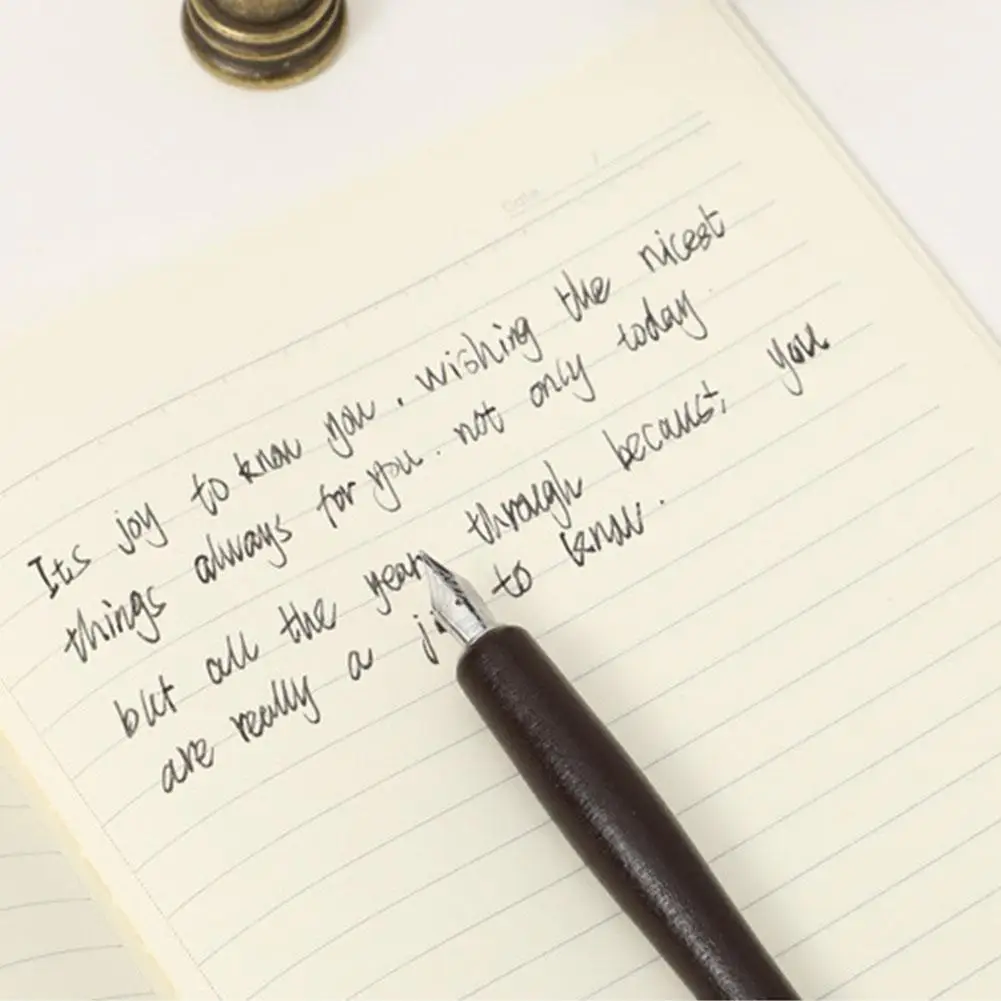 Date
Its joy to know you. wishing the nicest
things always for you. not only today
but all the year through because, you
are really a to know.